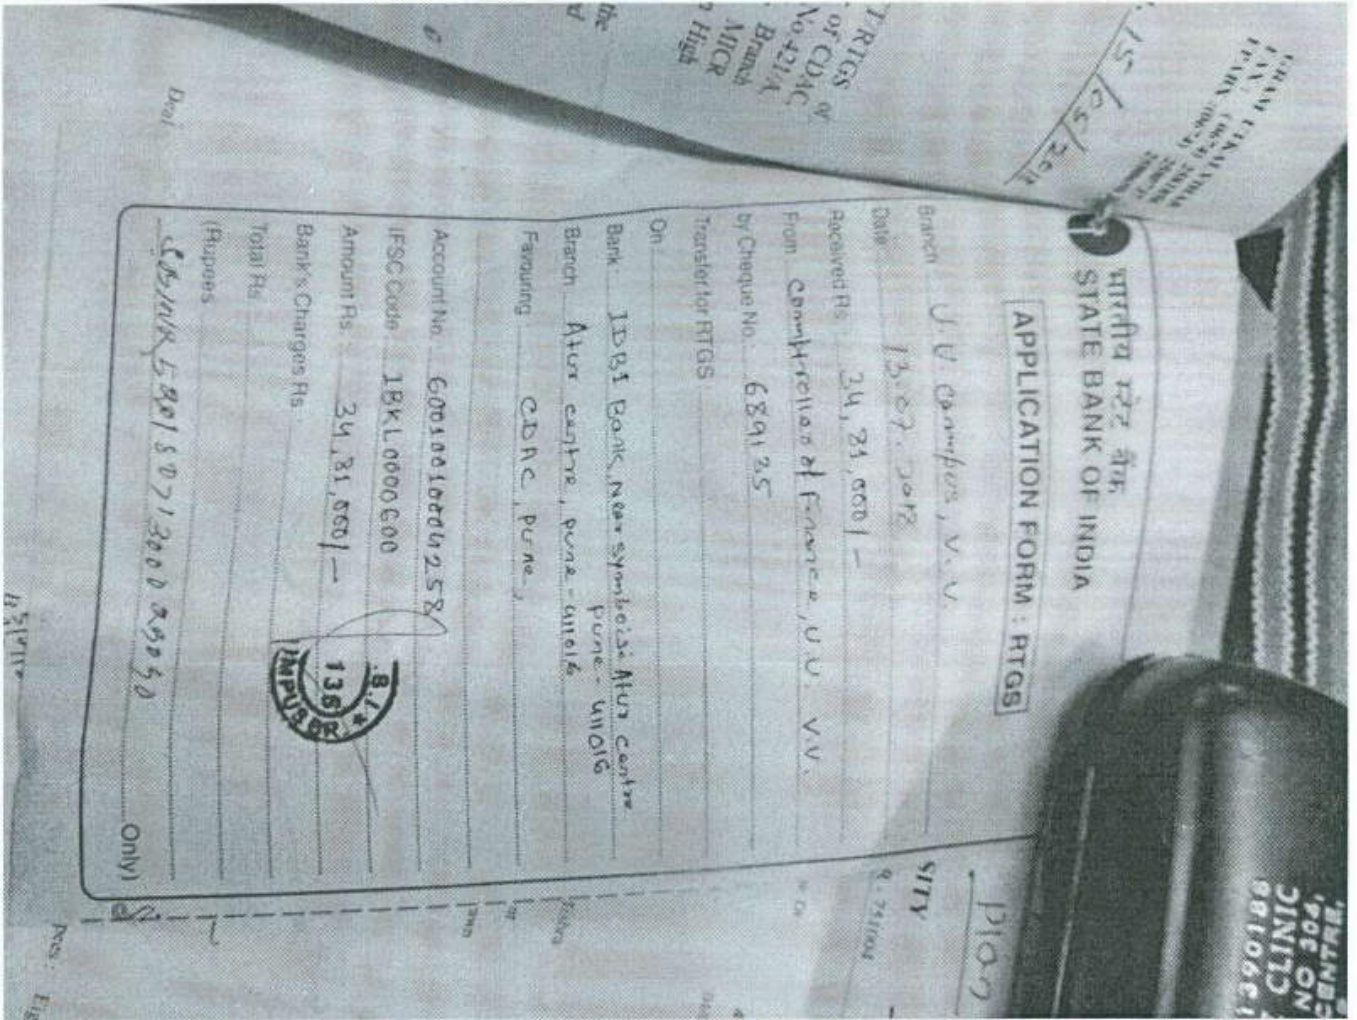 भारतीय स्टेट बैंक
STATE BANK OF INDIA
APPLICATION FORM : RTGS
Branch U.U. Campus, V.V.
Date 13.07.2018
Received Rs. 34,31,000/-
From Comptroller of Finance, U.U. V.V.
by Cheque No. 689135
Transfer for RTGS
On
Bank: IDBI Bank, Near symboisi Atur centre
pune - 411016
Branch Atur centre, pune - 411016
Favouring CDAC, pune,
Account No. 600100100004258/
IFSC Code 1BKL0000600
Amount Rs. 34,31,000/-
Bank's Charges Rs.
Total Rs.
(Rupees
Only)
.B.I. *
136
T/RTGS
of CDAC
No 421/A,
Branch
MICR
High
the
15/05/2018
Plan
SITY
1390186
CLINIC
NO 304,
CENTRE,